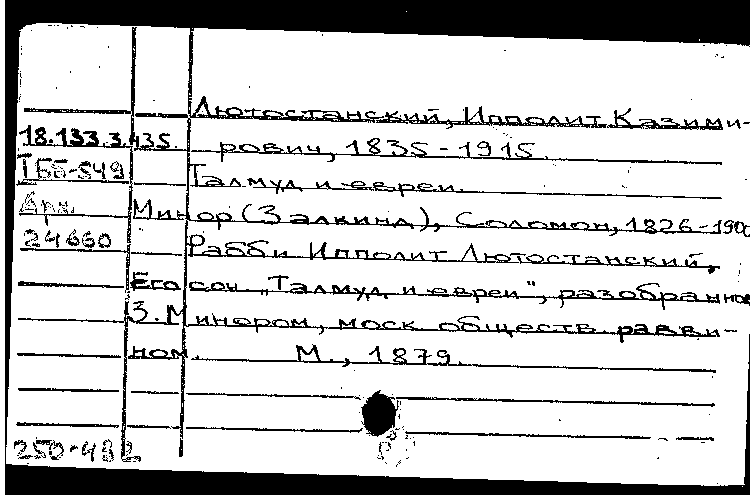 Лютостанский, Ипполит Казими-
18.133.3.435. рович, 1835-1915.
ТБб-549 Талмуд и евреи.
Арх. Минор (Залкинд), Соломон, 1826-1900
24660 Рабби Ипполит Лютостанский,
Его соч „Талмуд и евреи", разобранное
З. Минором, моск обществ равви-
ном. М., 1879.
250-482